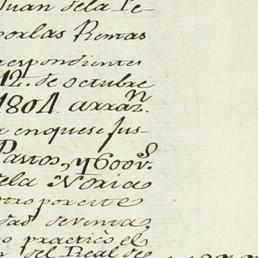 Juan dela Pe-
por las Rentas
respondientes
12. de octubre
1804. a razn
a en que se Jus-
Pastos, y 600 vs
dela Noria
otro por este
dad de venta
o practicò el
del Real de